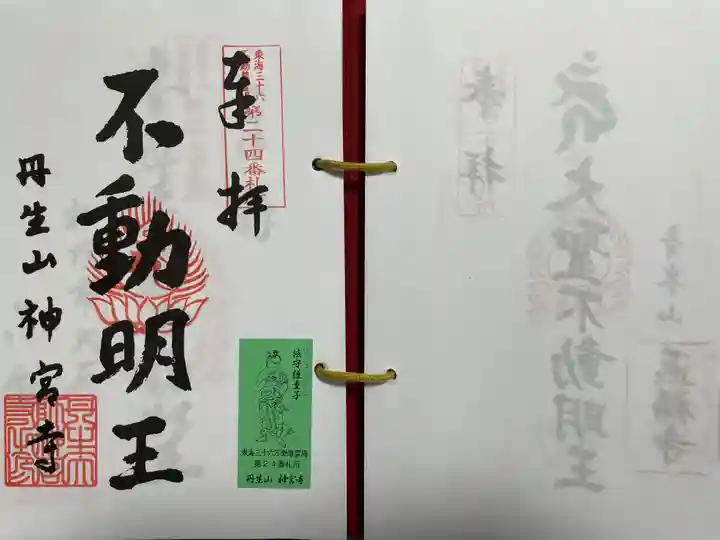 東海三十六
不動尊霊場
第二十四番札
奉拝
不動明王
丹生山神宮寺
法守護童子
東海三十六不動尊霊場
第24番札所
丹生山 神宮寺
大聖不動明王
奉拝